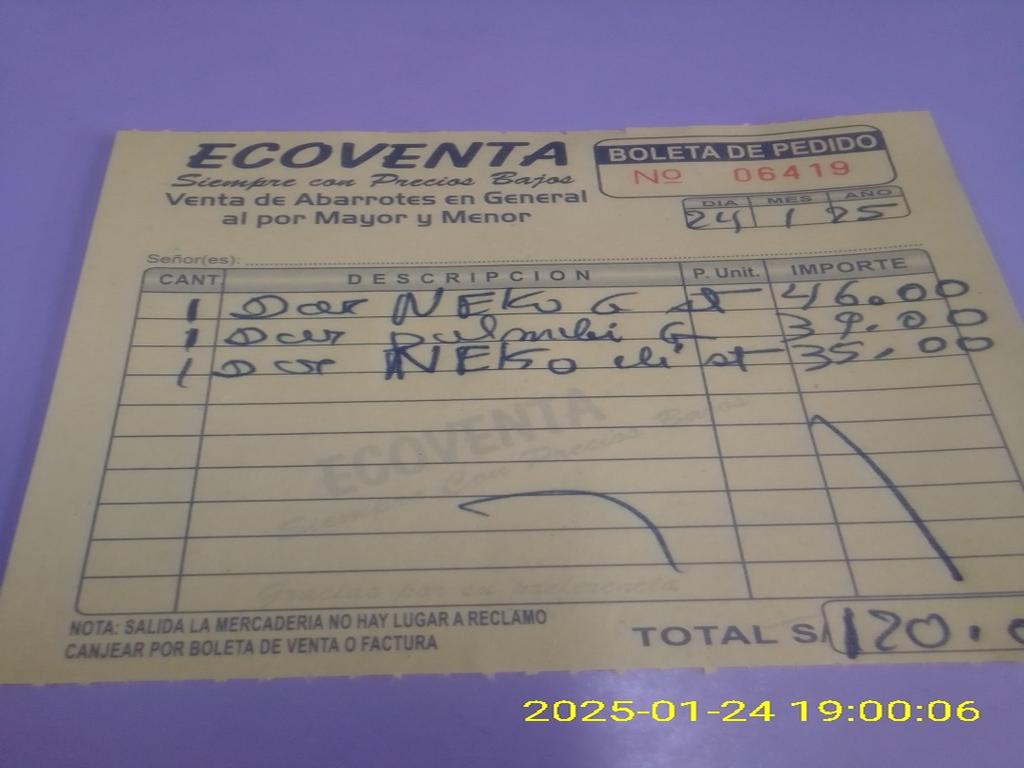 ECOVENTA
Siempre con Precios Bajos
Venta de Abarrotes en General
al por Mayor y Menor
BOLETA DE PEDIDO
Nº 06419
DIA MES AÑO
24 1 25
Señor(es):
CANT. DESCRIPCION P. Unit. IMPORTE
1 NEKO G 46.00
1 G 39.00
1 NEKO 35.00
ECOVENTA
Siempre Con Precios Bajos
Gracias por su preferencia
NOTA: SALIDA LA MERCADERIA NO HAY LUGAR A RECLAMO
CANJEAR POR BOLETA DE VENTA O FACTURA
TOTAL S/ 120.0
2025-01-24 19:00:06